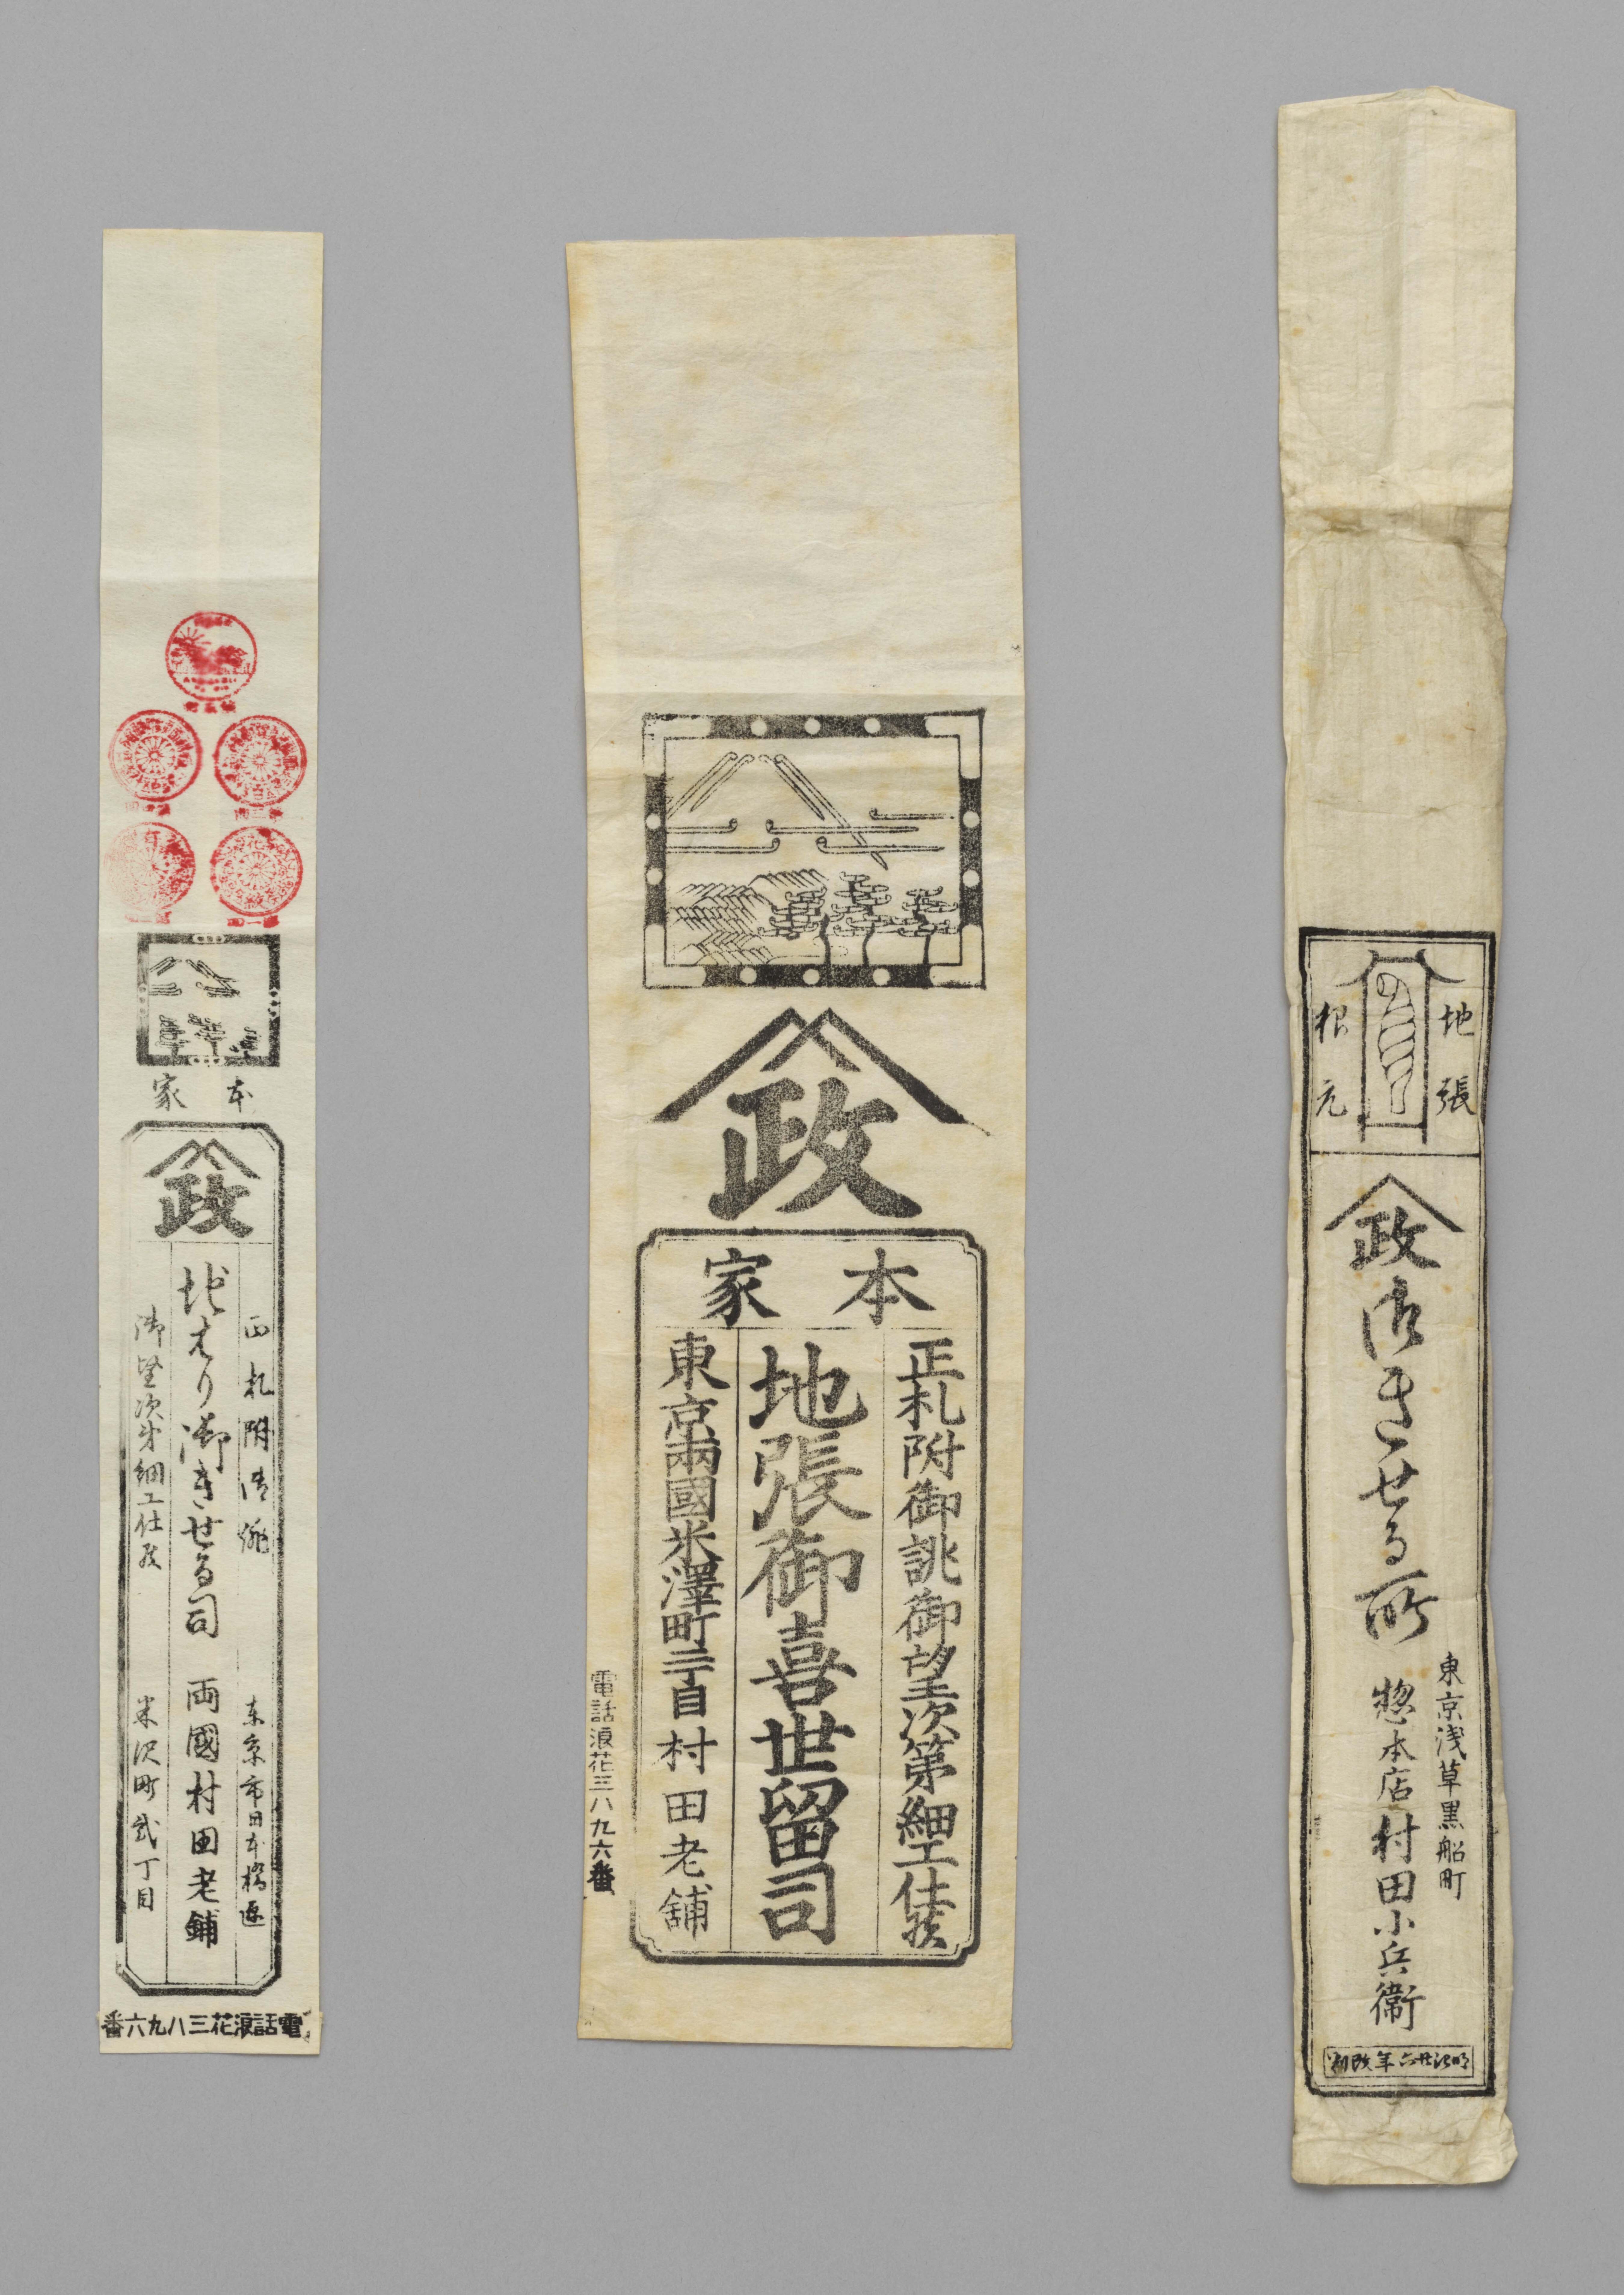 本家
政
正札附御誂
御望次第細工仕候
地はり御きせる司
東京市日本橋区
米沢町弐丁目
両國村田老鋪
電話浪花三八九六番
政
本家
正札附御誂御望次第細工仕候
地張御喜世留司
東京兩國米澤町二丁目村田老舖
電話浪花三八九六番
地張
根元
政
御きせる所
東京浅草黒船町
惣本店村田小兵衞
明治廿六年改刻